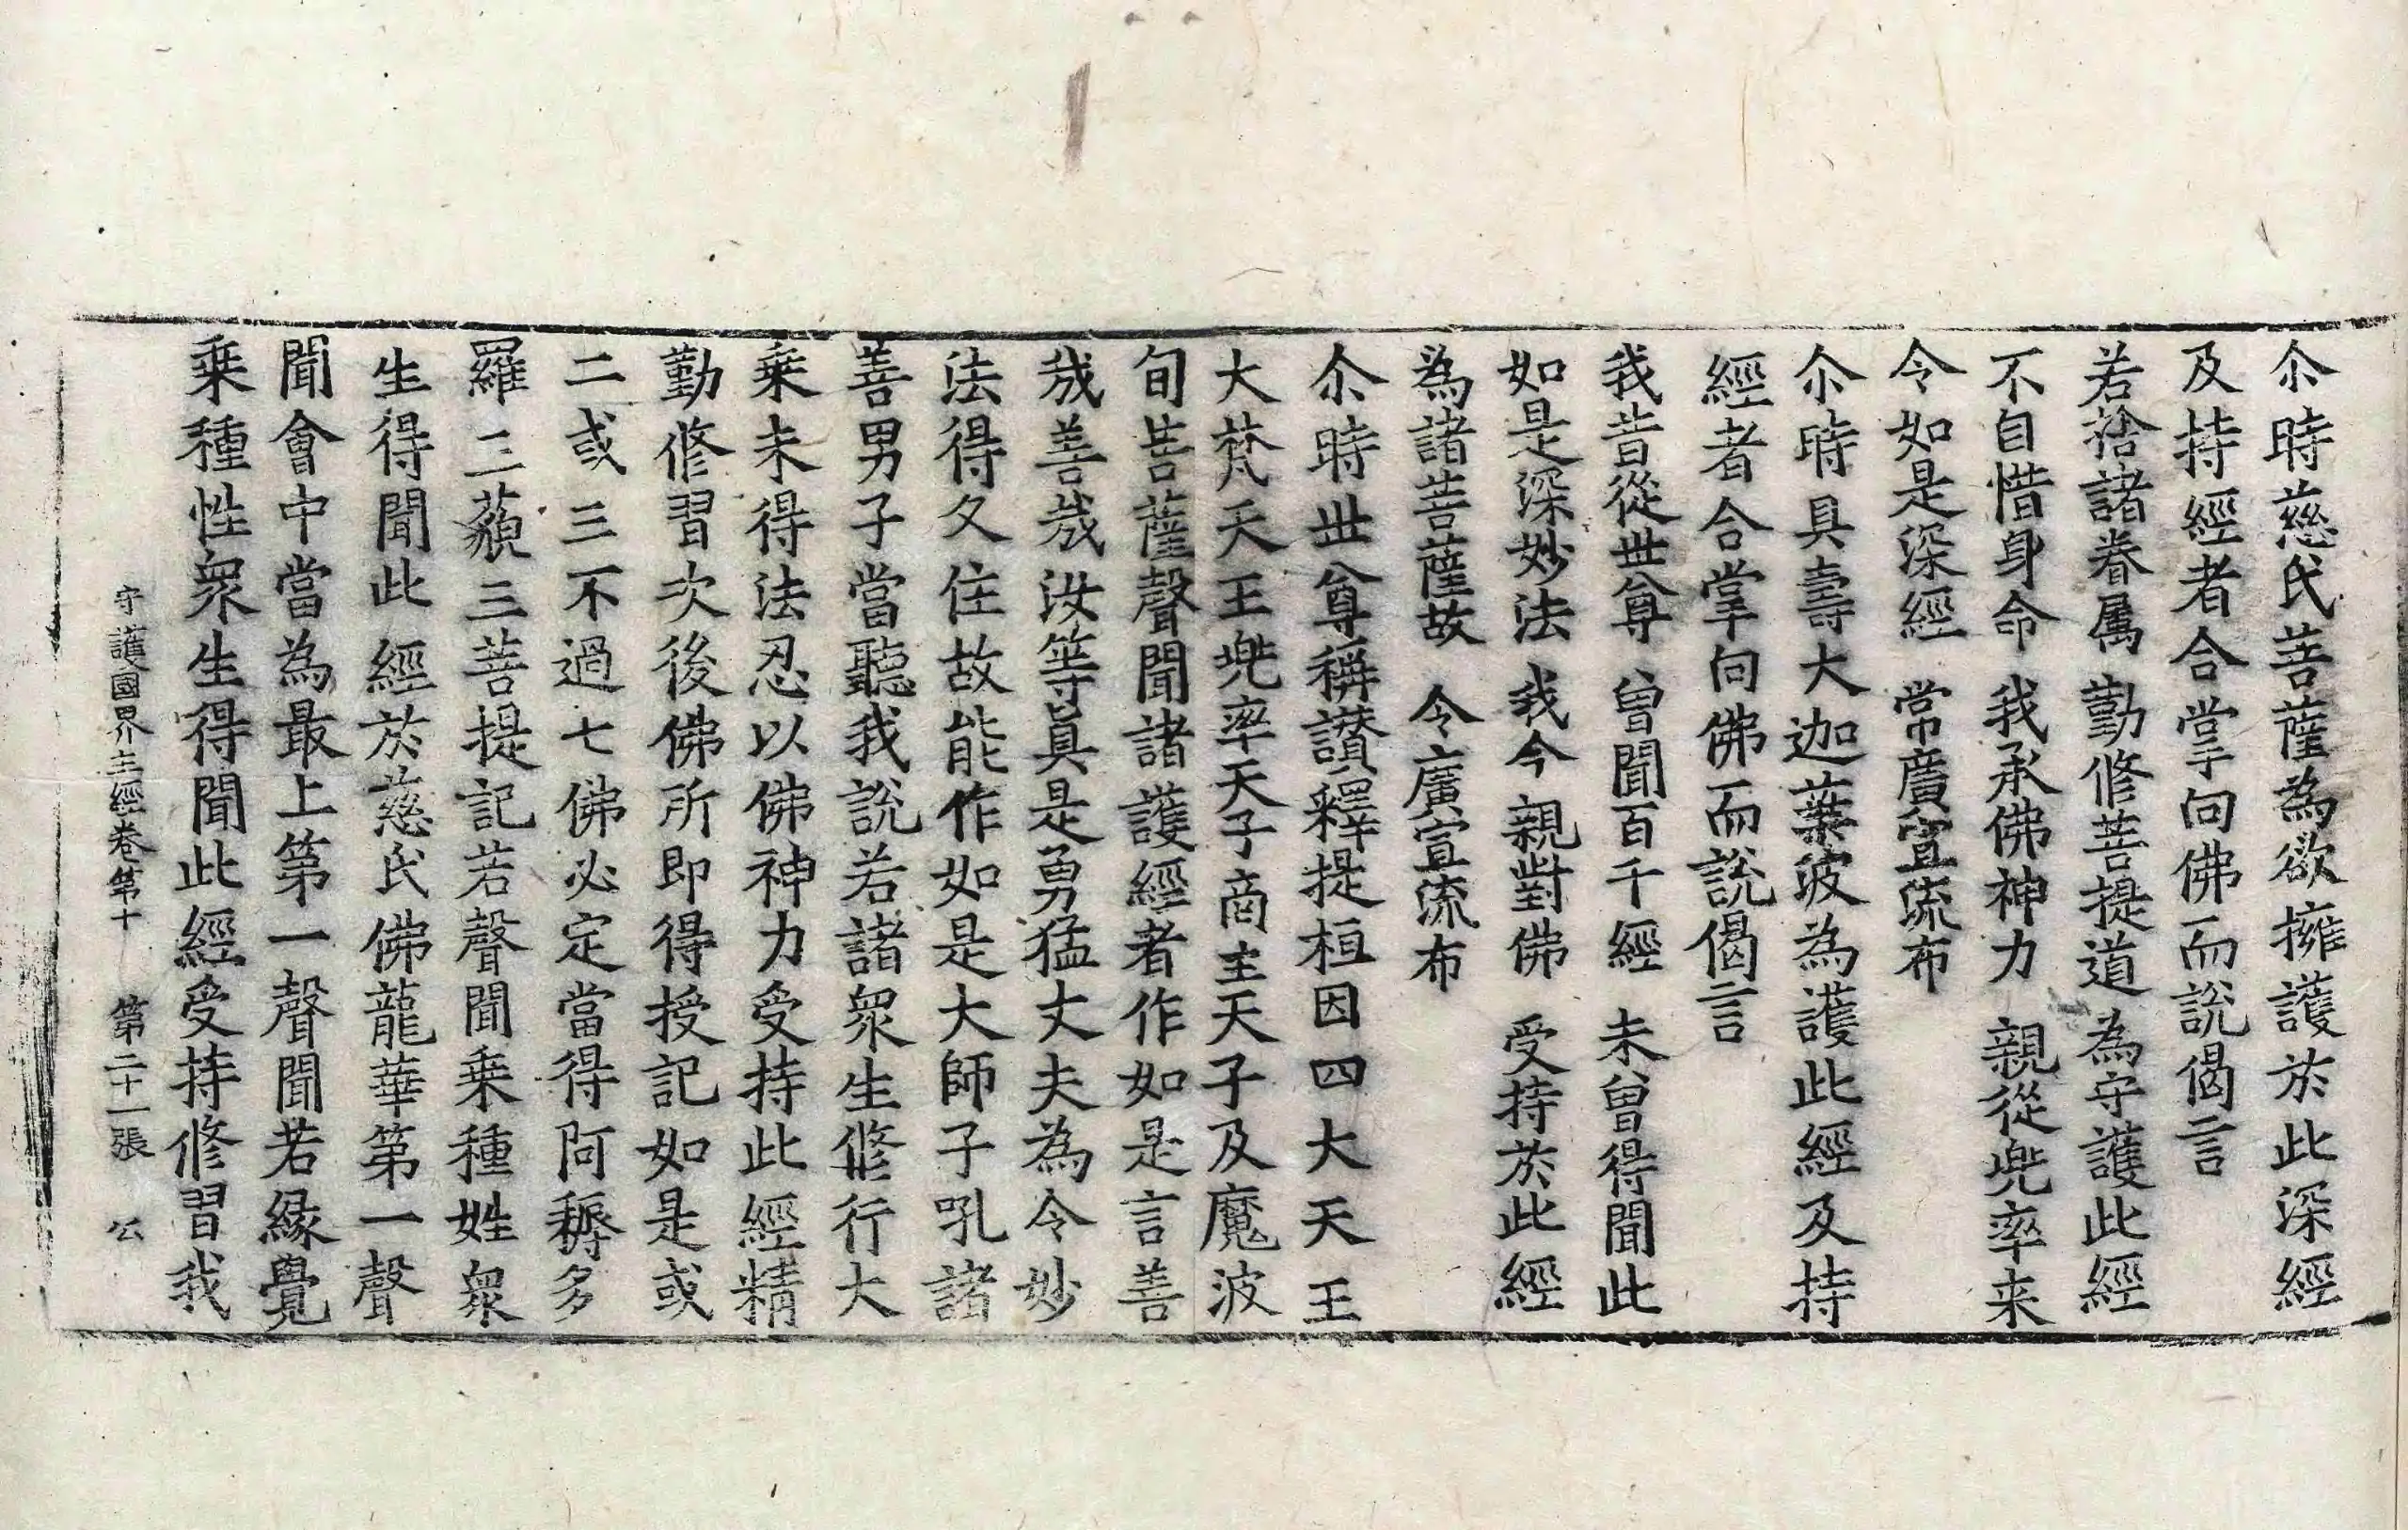 尒時慈氏菩薩為欲擁護於此深經
及持經者合掌向佛而說偈言
若捨諸眷属 勤修菩提道 為守護此經
不自惜身命 我承佛神力 親從兠率来
令如是深經 常廣宣流布
尒時具壽大迦葉波為護此經及持
經者合掌向佛而說偈言
我昔從世尊 曾聞百千經 未曾得聞此
如是深妙法 我今親對佛 受持於此經
為諸菩薩故 令廣宣流布
尒時世尊稱讃釋提桓因四大天王
大梵天王兠率天子商主天子及魔波
旬菩薩聲聞諸護經者作如是言善
哉善哉汝等真是勇猛丈夫為令妙
法得久住故能作如是大師子吼諸
善男子當聽我說若諸衆生修行大
乗未得法忍以佛神力受持此經精
勤修習次後佛所即得授記如是或
二或三不過七佛必定當得阿耨多
羅三藐三菩提記若聲聞乗種姓衆
生得聞此經於慈氏佛龍華第一聲
聞會中當為最上第一聲聞若緣覺
乗種性衆生得聞此經受持修習我
守護國界主經卷第十 第二十一張 公